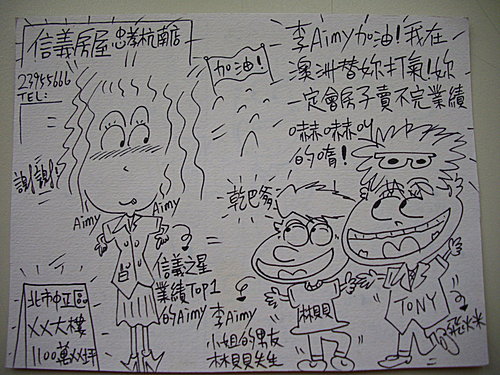 信義房屋 忠孝杭南店
23945666
TEL:
加油!
李Aimy加油!我在
澳洲替妳打氣!妳
一定會房子賣不完業績
嚇嚇叫
的唷!
謝謝!
Aimy
Aimy
乾巴爹
信義之星
業績Top1
的Aimy
李Aimy
小姐的男友
林貝貝先生
林貝貝
TONY
北市中正區
XX大樓
1100萬XX坪